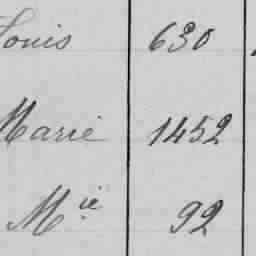 Louis 630
Marie 1452
M^ie 92